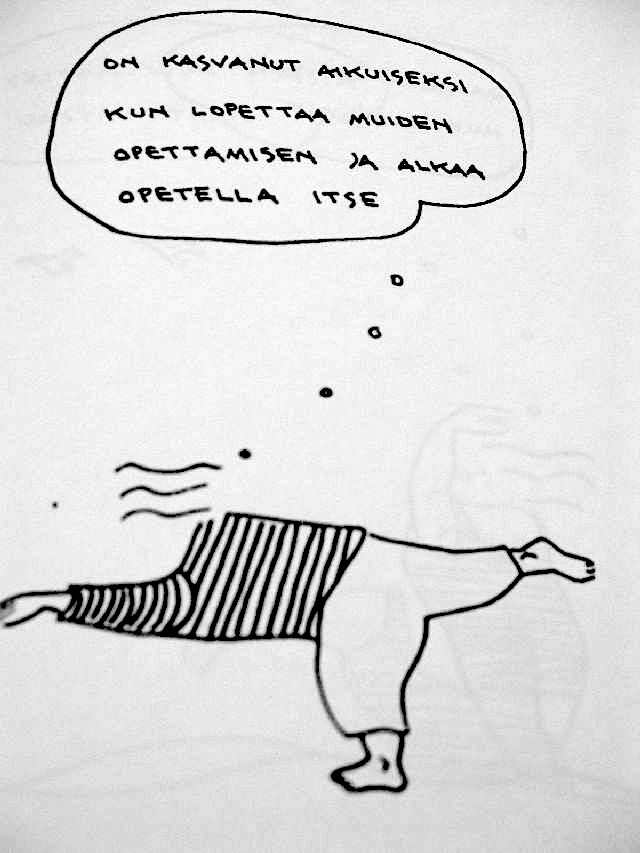 ON KASVANUT AIKUISEKSI
KUN LOPETTAA MUIDEN
OPETTAMISEN JA ALKAA
OPETELLA ITSE